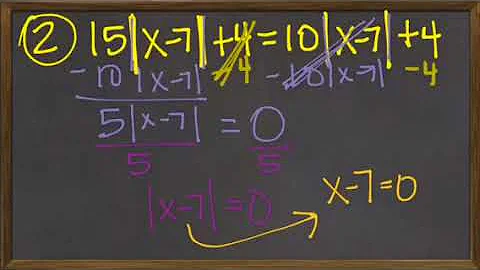 ② 15|x-7| + 4 = 10|x-7| + 4
-10|x-7| -4 -10|x-7| -4
5|x-7| = 0
5 5
|x-7| = 0
x-7=0